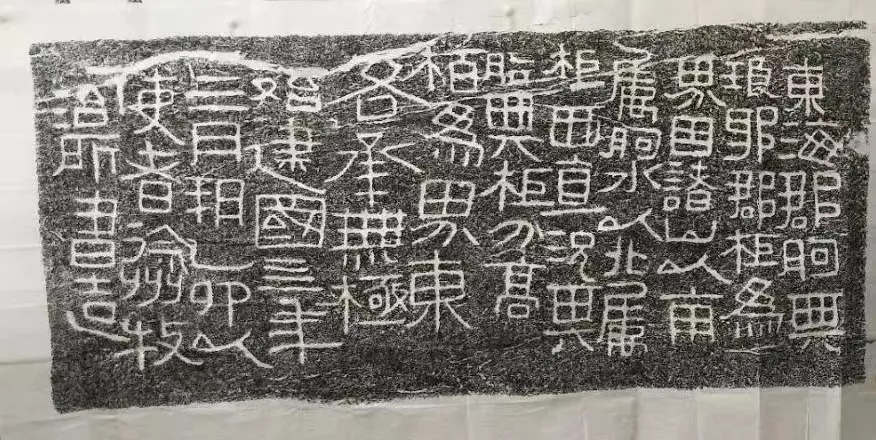 東海郡朐與
琅邪郡柜為
界因諸山以南
屬朐水以北屬
柜西直況其
朐與柜分高
栢為界東
各承無極
始建國亖年
亖月朔乙卯以
使者徐州牧
治所書造